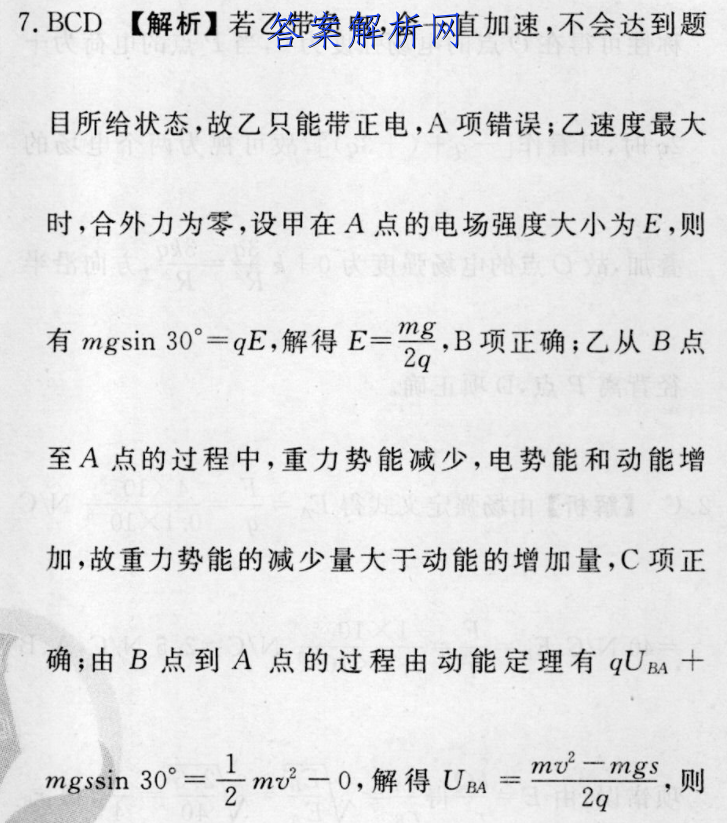 7. BCD 【解析】若乙带负电,在一直加速,不会达到题
答案解析网
目所给状态,故乙只能带正电,A 项错误;乙速度最大
时,合外力为零,设甲在 A 点的电场强度大小为 E,则
有 mgsin 30°=qE,解得 E=mg/2q,B 项正确;乙从 B 点
至 A 点的过程中,重力势能减少,电势能和动能增
加,故重力势能的减少量大于动能的增加量,C 项正
确;由 B 点到 A 点的过程由动能定理有 qU_BA +
mgssin 30° = 1/2 mv² − 0,解得 U_BA = (mv² − mgs)/2q,则